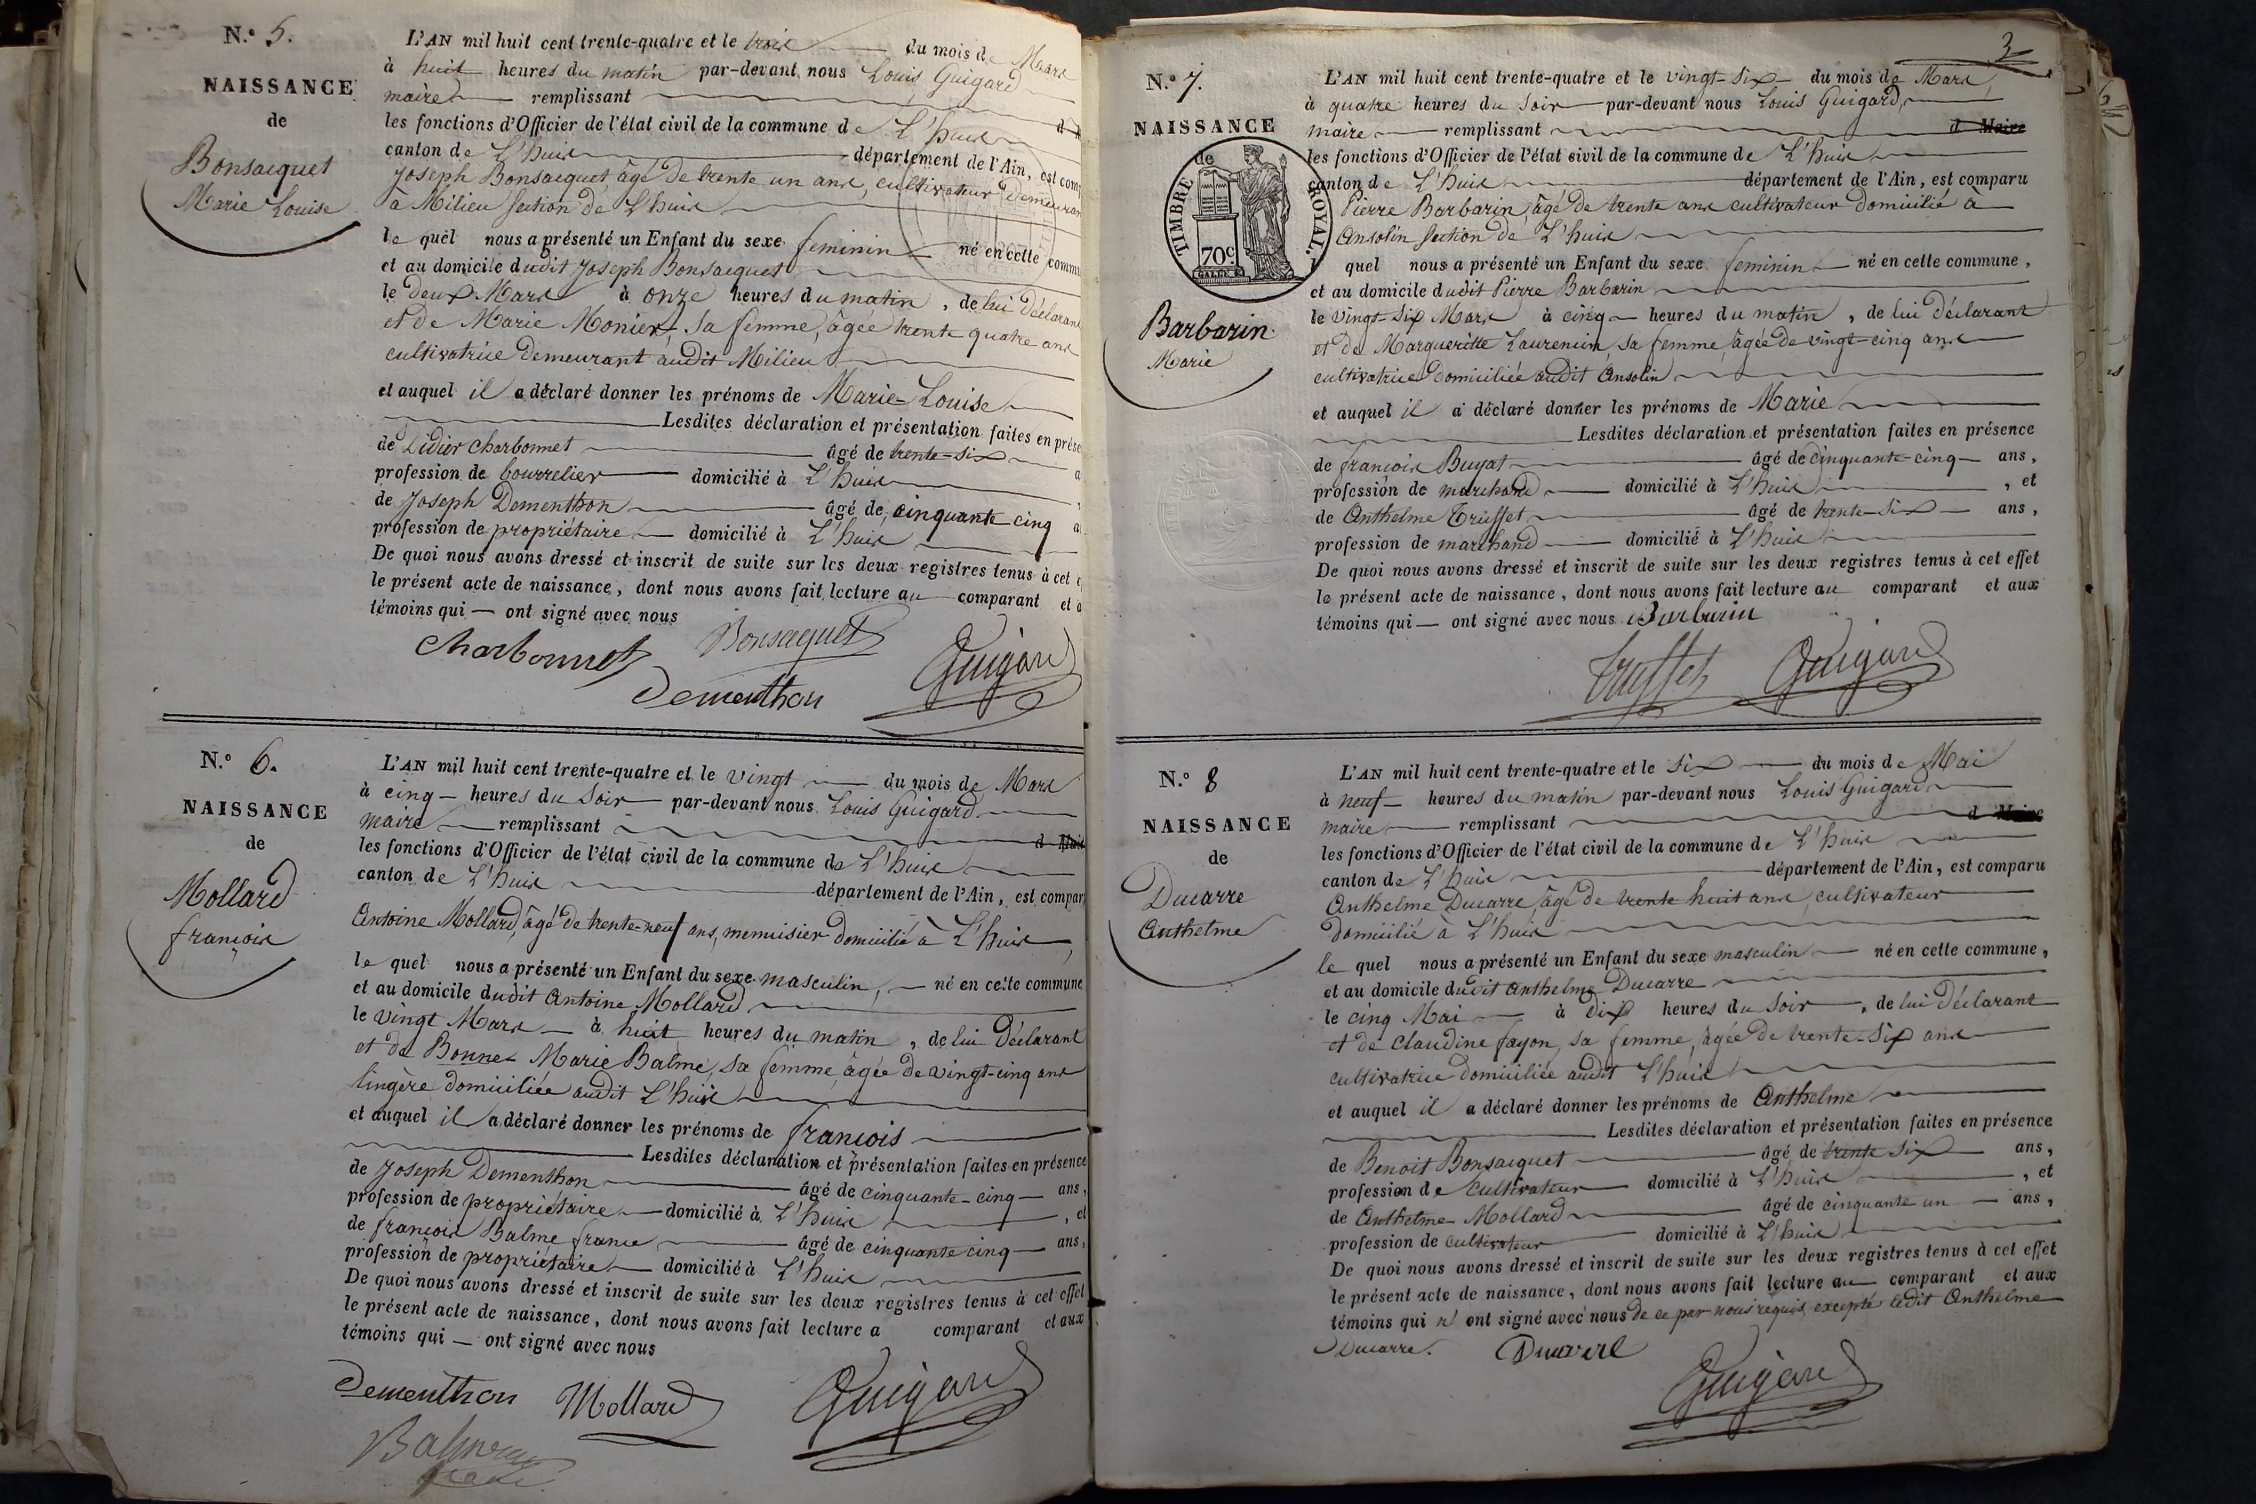 N.º 5.
NAISSANCE
de
Bonsacquet
Marie Louise
L'AN mil huit cent trente-quatre et le trois du mois de Mars
à huit heures du matin par-devant nous Louis Guigard
maire remplissant
les fonctions d'Officier de l'état civil de la commune de L'huis
canton de L'huis département de l'Ain, est comp
Joseph Bonsacquet âgé de trente un ans, cultivateur demeuran
à Milieu section de L'huis
le quel nous a présenté un Enfant du sexe feminin né en cette commu
et au domicile dudit Joseph Bonsacquet
le deux Mars à onze heures du matin, de lui déclarant
et de Marie Monier sa femme, âgée trente quatre ans
cultivatrice demeurant audit Milieu
et auquel il a déclaré donner les prénoms de Marie-Louise
Lesdites déclaration et présentation faites en prése
de Didier Charbonnet âgé de trente-six a
profession de bourrelier domicilié à L'huis
de Joseph Dementhon âgé de cinquante cinq a
profession de propriétaire domicilié à L'huis
De quoi nous avons dressé et inscrit de suite sur les deux registres tenus à cet e
le présent acte de naissance, dont nous avons fait lecture au comparant et a
témoins qui — ont signé avec nous
Charbonnet Bonsacquet Guigard
Dementhon
N.º 6.
NAISSANCE
de
Mollard
françois
L'AN mil huit cent trente-quatre et le vingt du mois de Mars
à cinq heures du soir par-devant nous Louis Guigard
maire remplissant d Maire
les fonctions d'Officier de l'état civil de la commune de L'huis
canton de L'huis département de l'Ain, est compar
Antoine Mollard, âgé de trente-neuf ans, menuisier domicilié à L'huis,
le quel nous a présenté un Enfant du sexe masculin, né en cette commune
et au domicile dudit Antoine Mollard
le vingt Mars à huit heures du matin, de lui déclarant
et de Bonne Marie Balme, sa femme âgée de vingt-cinq ans
lingère domiciliée audit L'huis
et auquel il a déclaré donner les prénoms de françois
Lesdites déclaration et présentation faites en présence
de Joseph Dementhon âgé de cinquante-cinq ans,
profession de propriétaire domicilié à L'huis, et
de françois Balme france âgé de cinquante cinq ans,
profession de propriétaire domicilié à L'huis
De quoi nous avons dressé et inscrit de suite sur les deux registres tenus à cet effet
le présent acte de naissance, dont nous avons fait lecture a comparant et aux
témoins qui — ont signé avec nous
Dementhon Mollard Guigard
3
N.º 7.
NAISSANCE
de
TIMBRE ROYAL.
70c
Barbarin
Marie
L'AN mil huit cent trente-quatre et le vingt-six du mois de Mars,
à quatre heures du soir par-devant nous Louis Guigard,
maire remplissant d Maire
les fonctions d'Officier de l'état civil de la commune de L'huis
canton de L'huis département de l'Ain, est comparu
Pierre Barbarin, âgé de trente ans cultivateur domicilié à
Ansolin section de L'huis
quel nous a présenté un Enfant du sexe feminin né en cette commune,
et au domicile dudit Pierre Barbarin
le vingt-six Mars à cinq heures du matin, de lui déclarant
et de Margueritte Laurencin, sa femme, âgée de vingt-cinq ans
cultivatrice domiciliée audit Ansolin
et auquel il a déclaré donner les prénoms de Marie
Lesdites déclaration et présentation faites en présence
de françois Buyat âgé de cinquante-cinq ans,
profession de marchand domicilié à L'huis, et
de Anthelme Truffet âgé de trente-six ans,
profession de marchand domicilié à L'huis
De quoi nous avons dressé et inscrit de suite sur les deux registres tenus à cet effet
le présent acte de naissance, dont nous avons fait lecture au comparant et aux
témoins qui — ont signé avec nous Barbarin
Truffet Guigard
N.º 8
NAISSANCE
de
Ducarre
Anthelme
L'AN mil huit cent trente-quatre et le six du mois de Mai
à neuf heures du matin par-devant nous Louis Guigard
maire remplissant d Maire
les fonctions d'Officier de l'état civil de la commune de L'huis
canton de L'huis département de l'Ain, est comparu
Anthelme Ducarre, âgé de trente huit ans, cultivateur
domicilié à L'huis
le quel nous a présenté un Enfant du sexe masculin né en cette commune,
et au domicile dudit Anthelme Ducarre
le cinq Mai à dix heures du soir, de lui déclarant
et de Claudine fayon, sa femme, âgée de trente-six ans
cultivatrice domiciliée audit L'huis
et auquel il a déclaré donner les prénoms de Anthelme
Lesdites déclaration et présentation faites en présence
de Benoit Bonsacquet âgé de trente six ans,
profession de cultivateur domicilié à L'huis, et
de Anthelme Mollard âgé de cinquante un ans,
profession de cultivateur domicilié à L'huis
De quoi nous avons dressé et inscrit de suite sur les deux registres tenus à cet effet
le présent acte de naissance, dont nous avons fait lecture au comparant et aux
témoins qui n' ont signé avec nous de ce par nous requis, excepté ledit Anthelme
Ducarre. Guigard